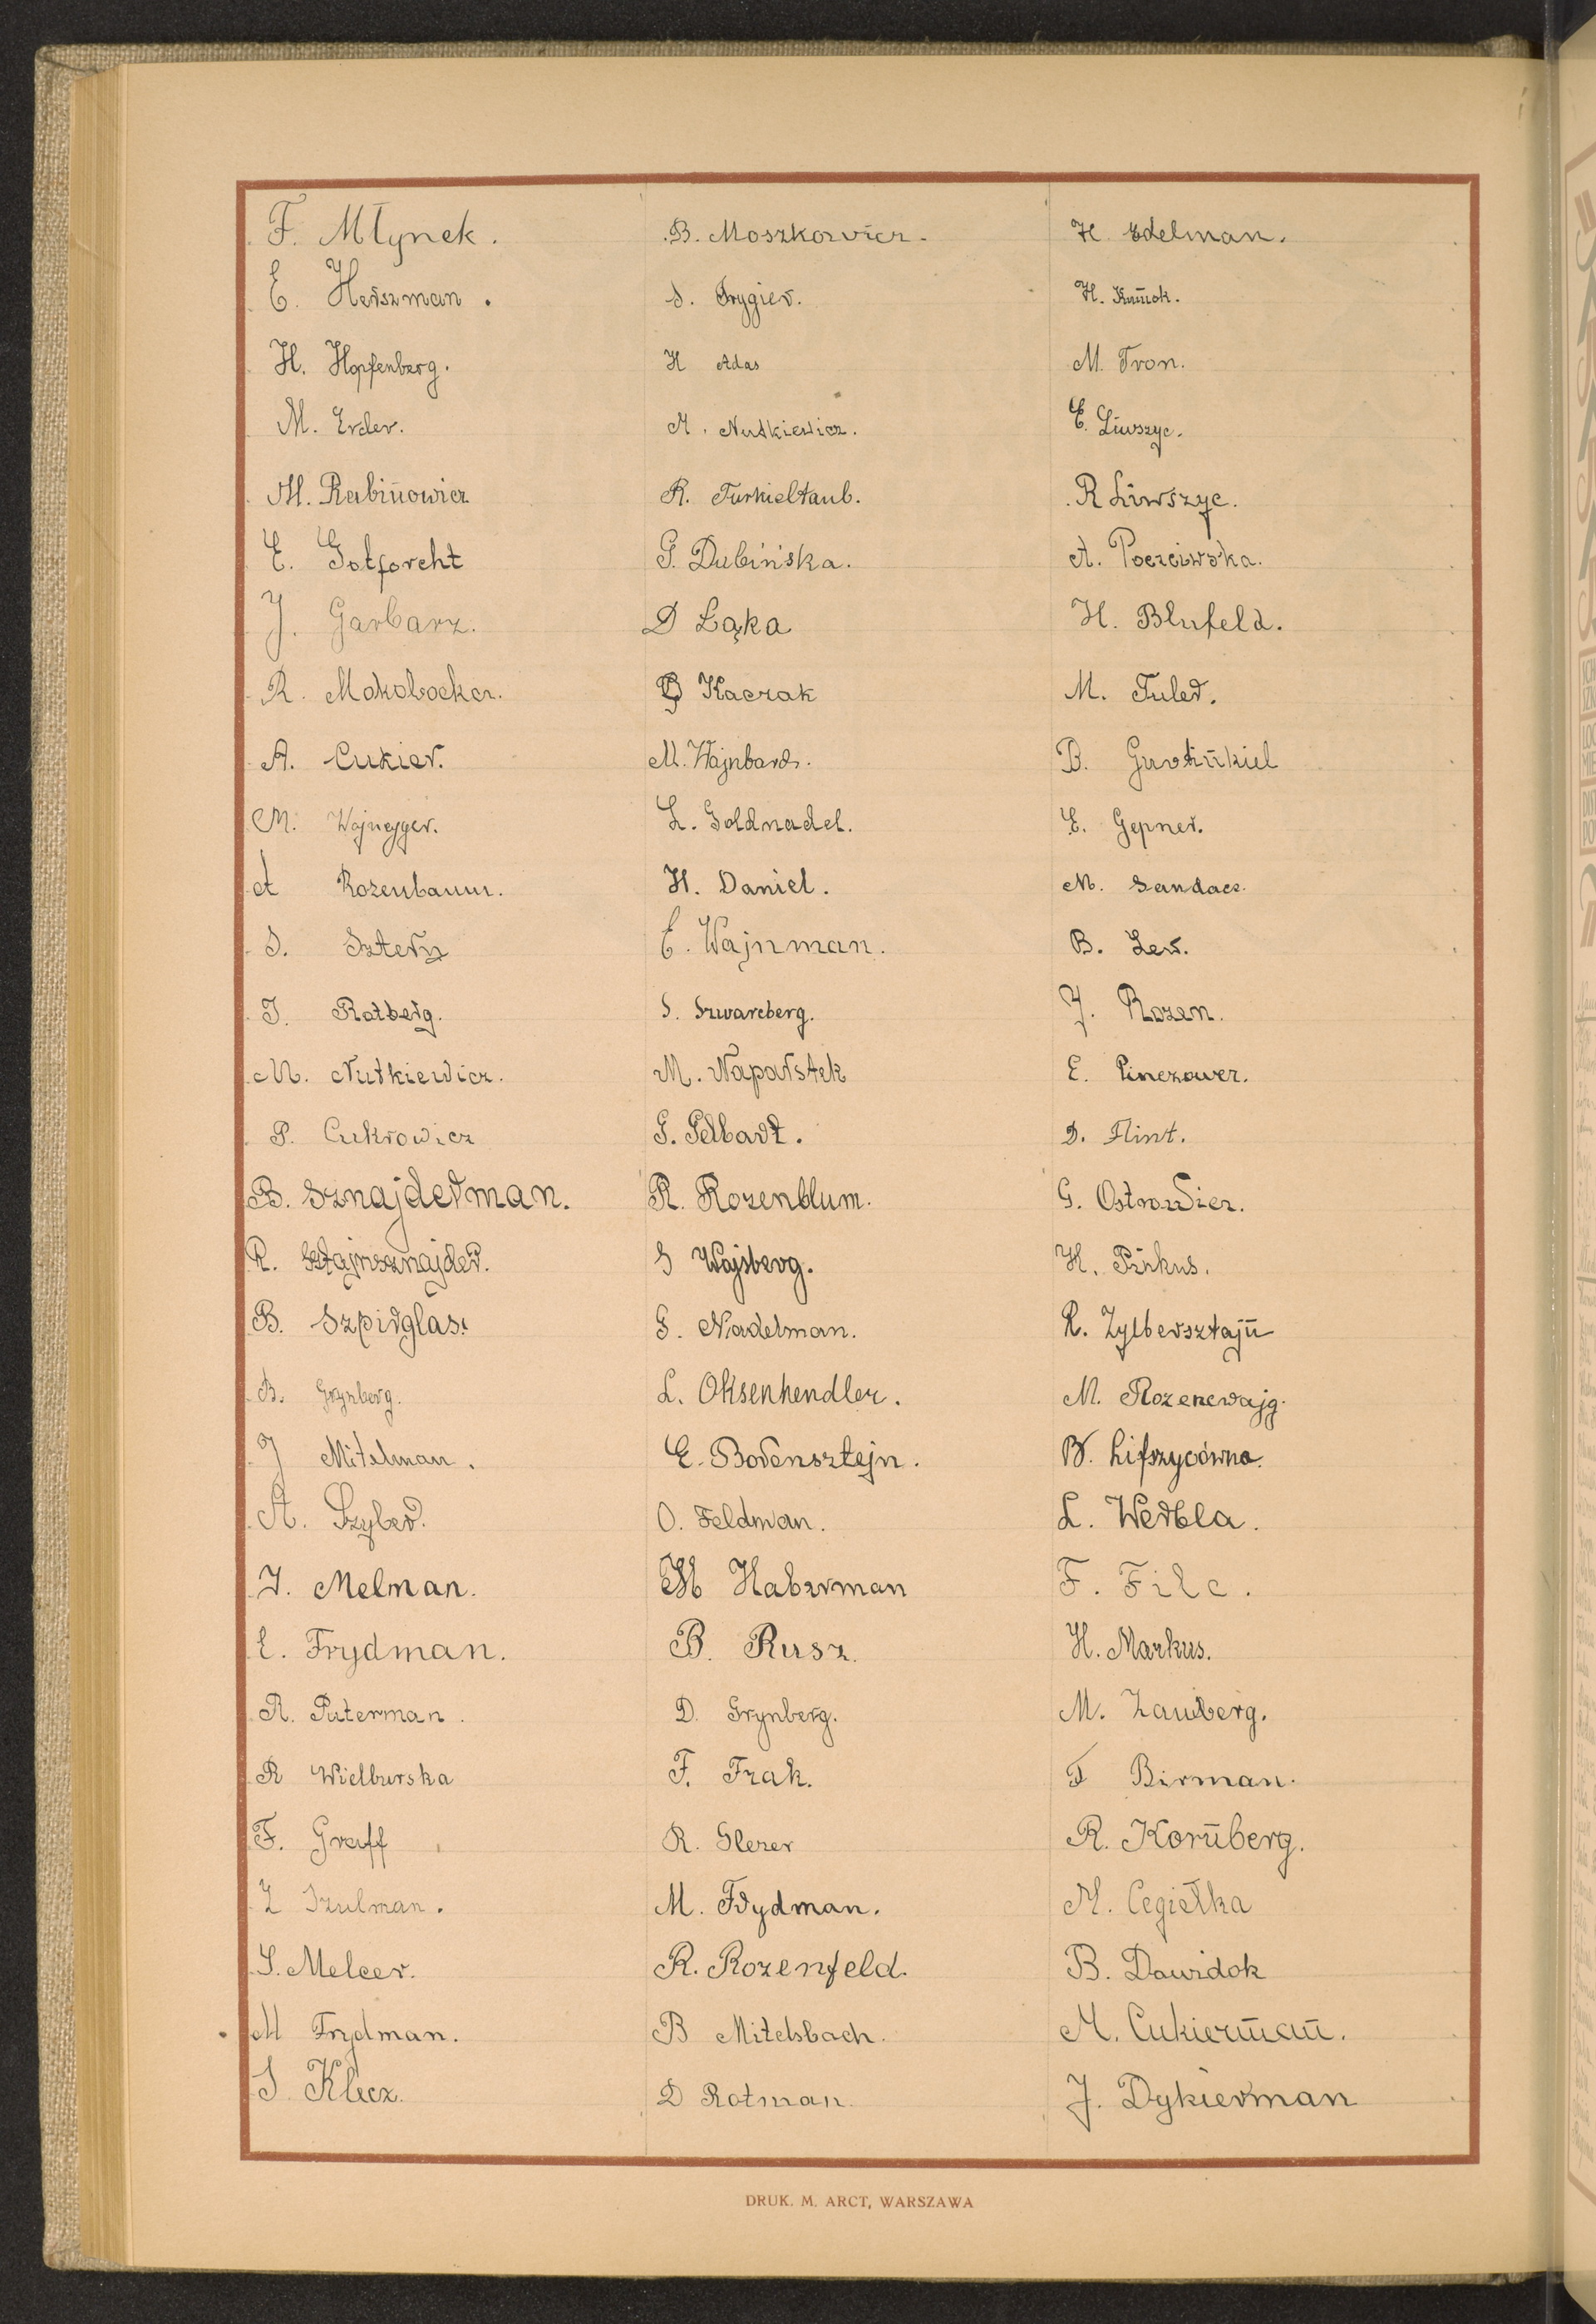 F. Młynek.
E. Herszman.
H. Hopfenberg.
M. Erder.
M. Rabinowicz
E. Gotforcht
J. Garbarz.
R. Mokobocka.
A. Cukier.
M. Wajnejger.
A Rozenbaum.
S. Sztern
J. Rotberg.
M. Nutkiewicz.
P. Cukrowicz
B. Sznajderman.
R. Sztajnsznajder.
B. Szpirglas.
B. Grynberg.
J Mitelman.
A. Szyber.
J. Melman.
E. Frydman.
R. Puterman.
R Wielburska
F. Graff
Z Szulman.
S. Melcer.
M Frydman.
S Klecz.
B. Moszkowicz.
S. Frygier.
H Adas
M. Nutkiewicz.
R. Turkieltaub.
G. Dubińska.
D Łąka
B Kaczak
M. Wajnbard.
L. Goldnadel.
H. Daniel.
E. Wajnman.
S. Szwarcberg.
M. Naparstek
G. Gelbart.
R. Rozenblum.
S Wajsberg.
G. Nadelman.
L. Oksenhendler.
E. Borensztejn.
O. Feldman.
M Haberman
B. Rusz.
D. Grynberg.
F. Frak.
R. Glezer
M. Frydman.
R. Rozenfeld.
B Mitelsbach.
D Rotman.
H. Edelman.
H.
M. Tron.
E. Liwszyc.
R Liwszyc.
A. Poczciwska.
H. Blufeld.
M. Fuler.
B. Gurfinkiel
E. Gepner.
M. Sandacz.
B. Lew.
J. Rozen.
E. Pinczower.
D. Flint.
G. Ostrowicz.
H. Pinkus.
R. Zylbersztajn
M. Rozencwajg.
B. Lifszycówna.
L. Werbla.
F. Filc.
H. Markus.
M. Zauberg.
F Birman.
R. Kornberg.
M. Cegiełka
B. Dawidok
M. Cukierman.
J. Dykierman
DRUK. M. ARCT, WARSZAWA